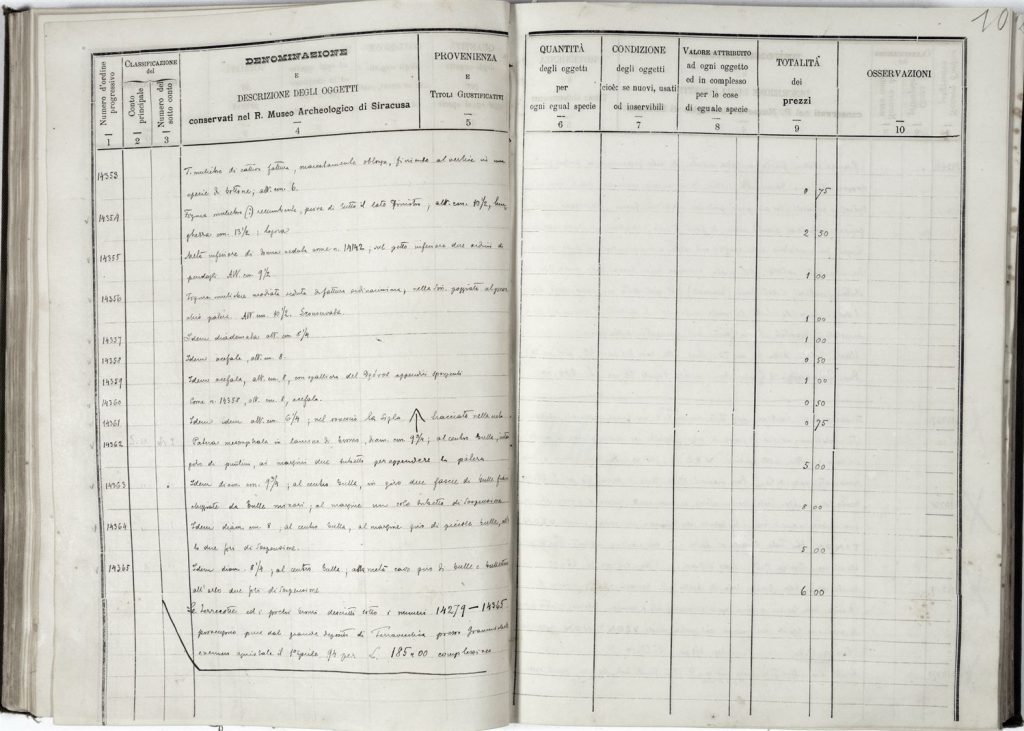 10
Numero d'ordine progressivo
CLASSIFICAZIONE del
Conto principale
Numero del sotto conto
DENOMINAZIONE
E
DESCRIZIONE DEGLI OGGETTI
conservati nel R. Museo Archeologico di Siracusa
PROVENIENZA
E
TITOLI GIUSTIFICATIVI
QUANTITÀ
degli oggetti
per
ogni egual specie
CONDIZIONE
degli oggetti
cioè: se nuovi, usati
od inservibili
VALORE ATTRIBUITO
ad ogni oggetto
ed in complesso
per le cose
di eguale specie
TOTALITÀ
dei
prezzi
OSSERVAZIONI
1 2 3 4 5 6 7 8 9 10
14353 di cattiva fattura, marcatamente oblunga, finiente al vertice in una
specie di bottone; alt. cm. 6. 0 75
14354 Figura muliebre (?) recumbente, priva di tutto il lato sinistro; alt. cm. 10 1/2, lun-
ghezza cm. 13 1/2; logora 2 50
14355 Metà inferiore di donna seduta come n. 14142; nel petto inferiore due ordini di
pendagli. Alt. cm. 9 1/2 1 00
14356 Figura muliebre modiata seduta di fattura ordinarissima, nella
patera. Alt. cm. 10 1/2. 1 00
14357 Idem diademata alt. cm. 8 1/4 1 00
14358 Idem acefala, alt. cm. 8. 0 50
14359 Idem acefala, alt. cm. 8, con spalliera del appendici sporgenti 1 00
14360 Come n. 14358, alt. cm. 8, acefala. 0 50
14361 Idem idem alt. cm. 6 3/4; nel rovescio la sigla ↑ tracciata nella 0 75
14362 Patera mesomphala in lamina di bronzo, diam. cm. 9 3/4; al centro bulla,
giro di puntini, ai margini due buchetti per appendere la patera 5 00
14363 Idem diam. cm. 9 3/4; al centro bulla, in giro due fascie di bulle
da bulle minori; al margine un solo buchetto di sospensione 8 00
14364 Idem diam. cm. 8; al centro bulla, al margine giro di piccole bulle,
due fori di sospensione. 5 00
14365 Idem diam. 8 1/4; al centro bulla; giro di bulle e bullettine
all'orlo due fori di sospensione 6 00
Le terrecotte ed i pochi bronzi descritti sotto i numeri 14279 – 14365
provengono pure dal grande deposito di Terravecchia presso Grammichele
94 per L. 185,00 complessive